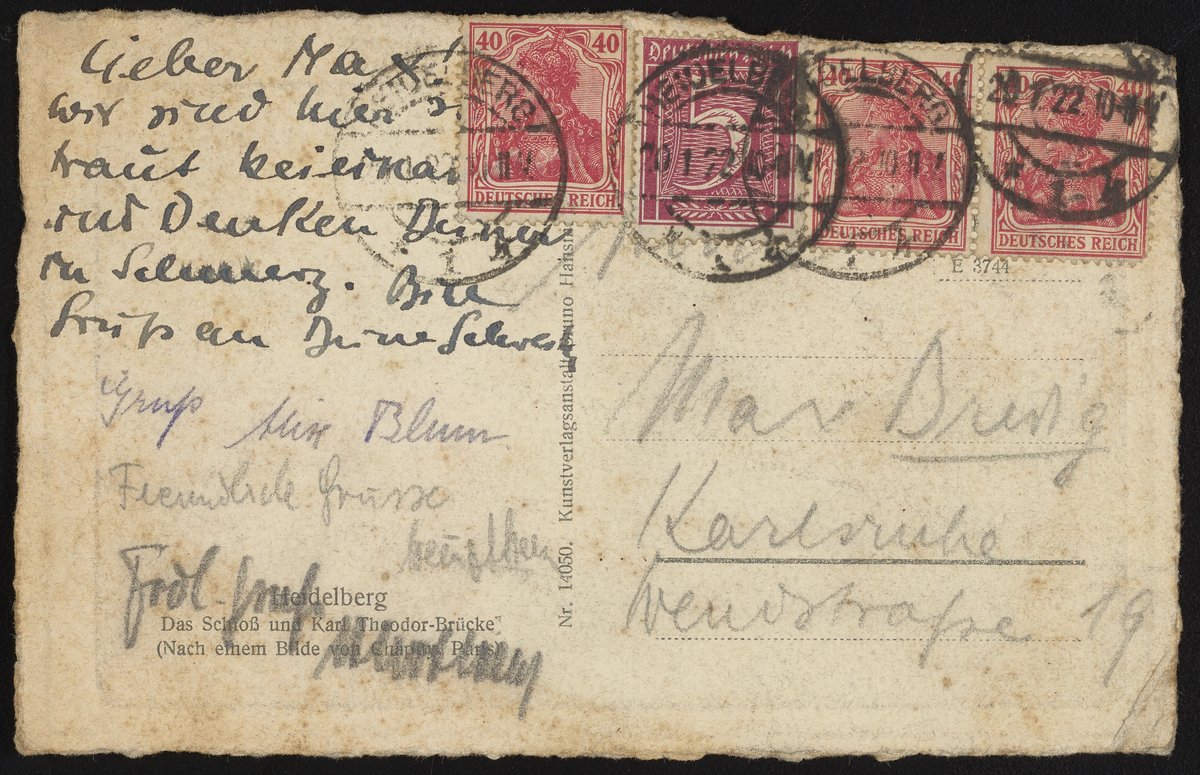 Lieber Max!
wir sind hier
traut beieinan
und Denken Deiner
in Schmerz. Bitte
Gruß an Deine Schwest
Gruß Blum
Freundliche Grüsse
Frdl. Gruß
Heidelberg
Das Schloß und Karl Theodor-Brücke
(Nach einem Bilde von Chapuy, Paris)
Nr. 14050. Kunstverlagsanstalt Bruno Hansm
40 40
DEUTSCHES REICH
HEIDELBERG
Deutsches Reich
5
HEIDELBERG
20.1.22.10-11V.
40
DEUTSCHES REICH
HEIDELBERG
40
DEUTSCHES REICH
20.1.22.10-11V.
E 3744
Max Bredig
Karlsruhe
Wendtstraße 19